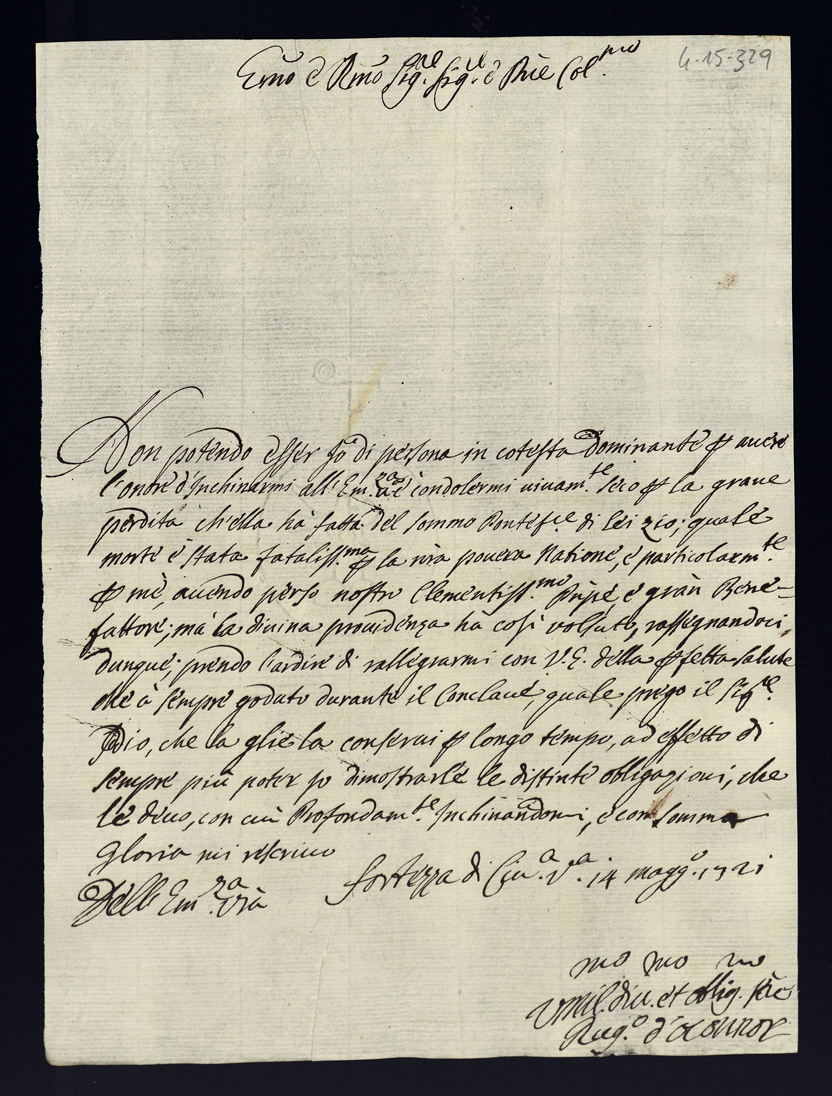 4-15-329
Em̃o e Rm̃o Sig.re Sig.re e Prñe Col.mo
Non potendo esser Jo di persona in cotesta Dominante ꝑ avere
l'onore d'Inchinarmi all'Em.za Va è condolermi vivam.te seco ꝑ la grave
perdita ch'ella hà fatta del sommo Pontefce di lei zio; quale
morte è stata fataliss.ma ꝑ la nrã povera Natione, e particolarm.te
ꝑ mè, avendo perso nostro Clementiss.mo Prñpe e gràn Bene-
fattore; mà la divina providenza hà così volsuto, rassegnandoci
dunque; prendo l'ardire di rallegrarmi con V.E. della ꝑfetta salute
che à sempre goduto durante il Conclave, quale prego il Sig.re
Jddio, che la glie la conservi ꝑ longo tempo, ad effetto di
sempre più poter Jo dimostrarle le distinte obligazioni, che
le devo, con cui Profondam.te Inchinandomi, e con somma
Gloria mi rescrivo
Dell Em.za Vrã
Fortezza di Civ.a V.a 14 magg.o 1721
Vmil.mo div.mo et oblig.mo Sre
Rug.o d'Oconnor